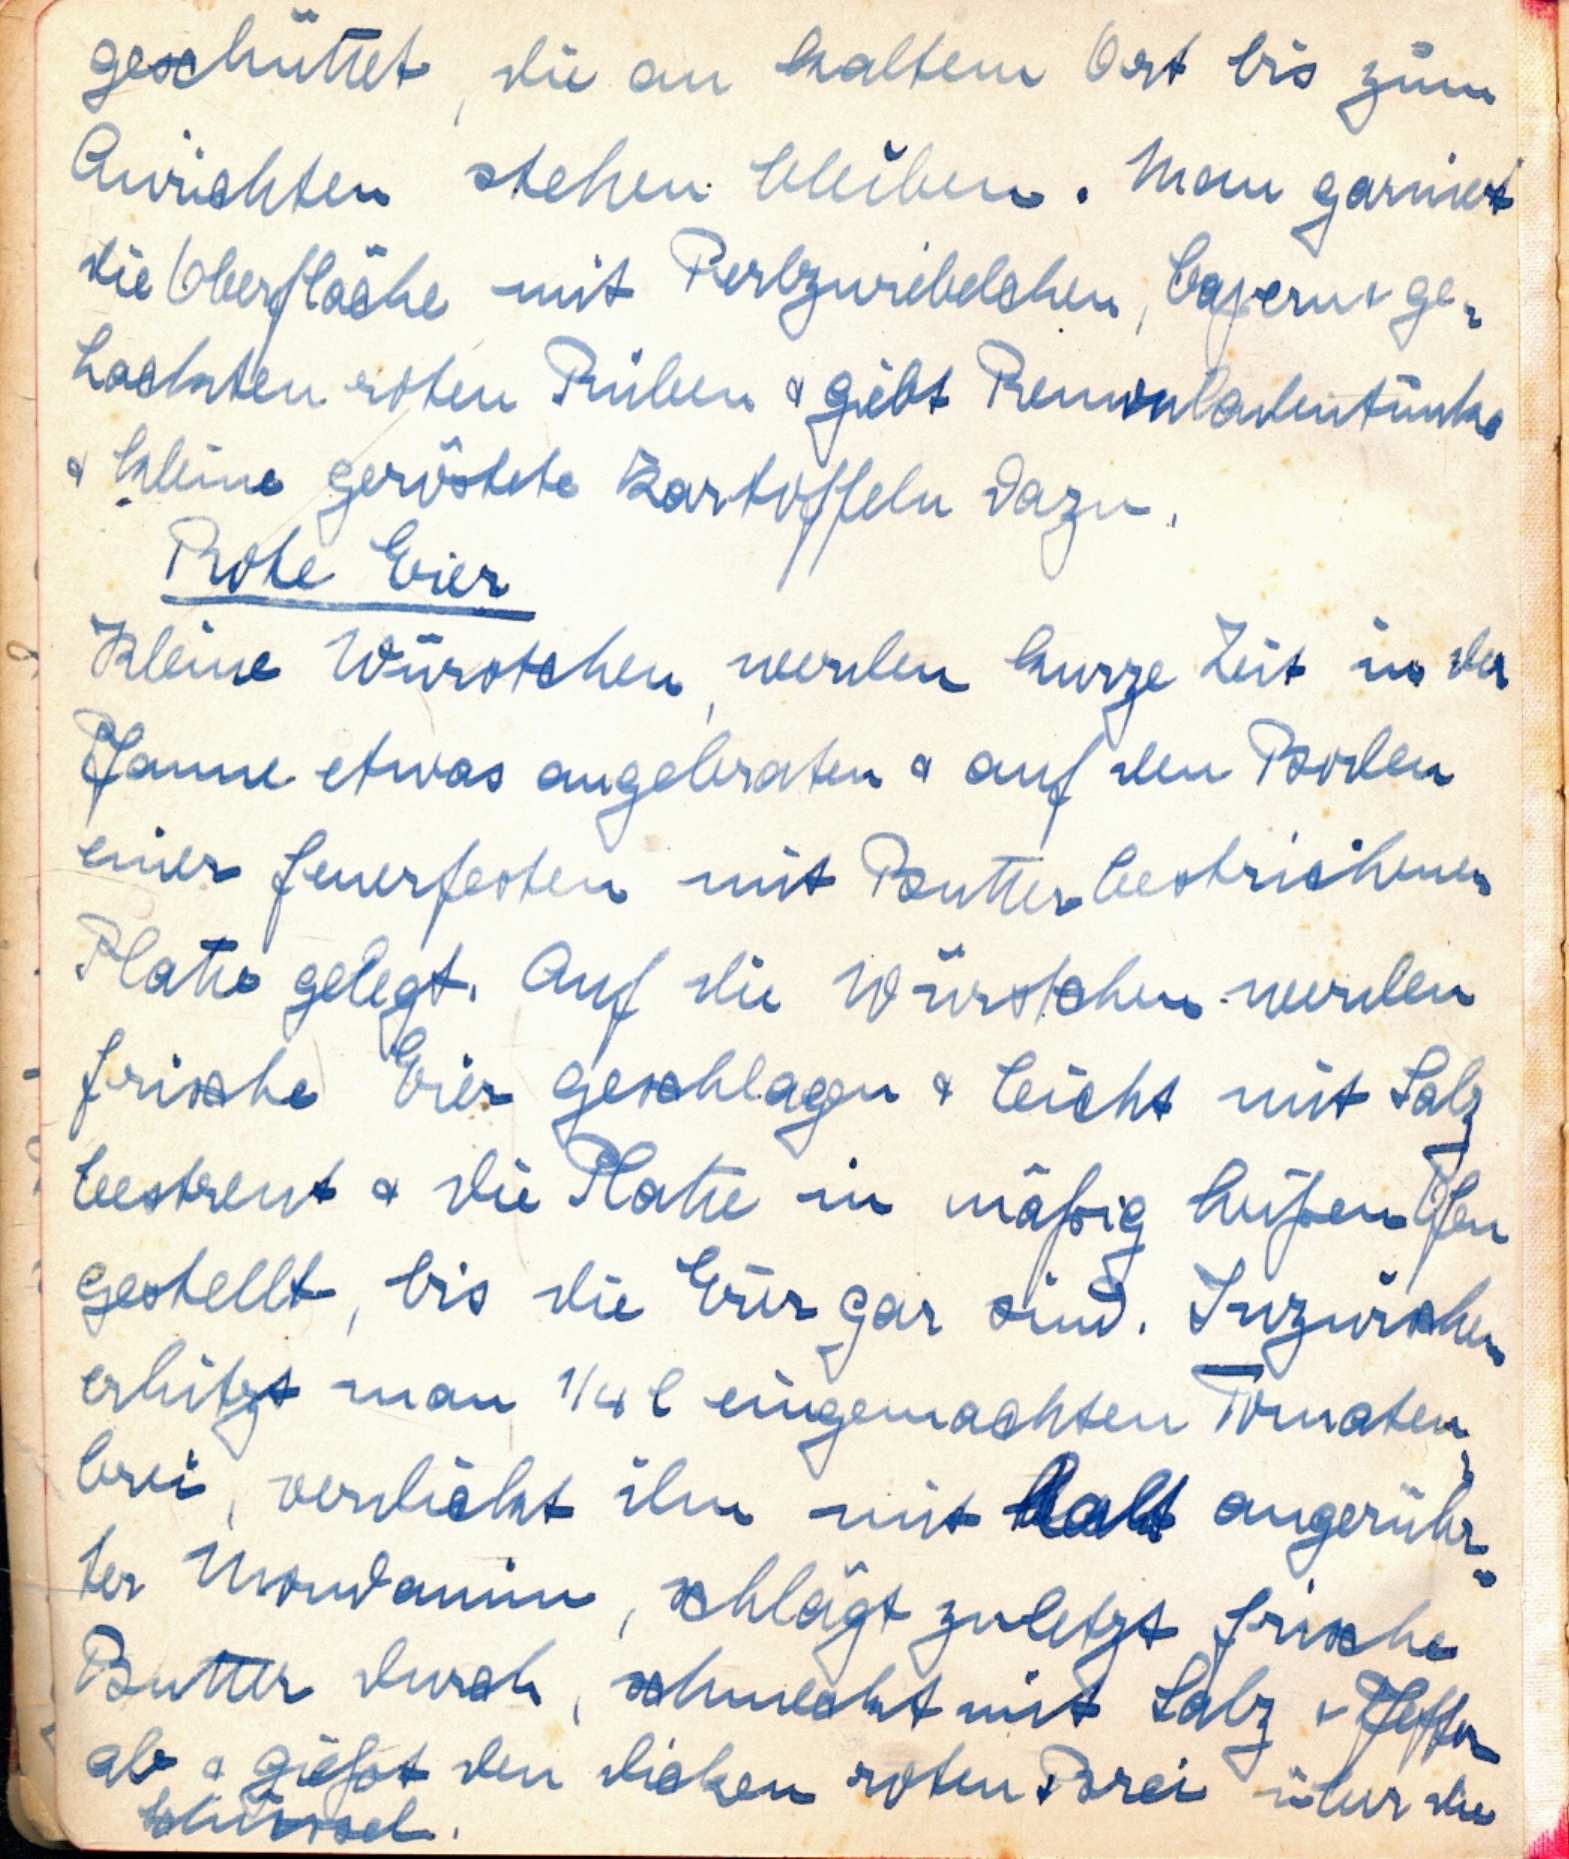 geschüttet, die an kaltem Ort bis zum
Anrichten stehen bleiben. Man garniert
die Oberfläche mit Perlzwiebelchen, Capern & ge-
hackten roten Rüben & giebt Remouladentunke
& kleine geröstete Kartoffeln dazu.
Rote Eier
Kleine Würstchen, werden kurze Zeit in der
Pfanne etwas angebraten & auf den Boden
einer feuerfesten mit Butter bestrichenen
Platte gelegt. Auf die Würstchen werden
frische Eier geschlagen & leicht mit Salz
bestreut & die Platte in mäßig heißen Ofen
gestellt, bis die Eier gar sind. Inzwischen
erhitzt man 1/4 l eingemachten Tomaten-
brei, verdickt ihn mit kalt angerühr-
ter Mondamin, schlägt zuletzt frische
Butter durch, schmeckt mit Salz & Pfeffer
ab & gießt den dicken roten Brei über die
Schüssel.